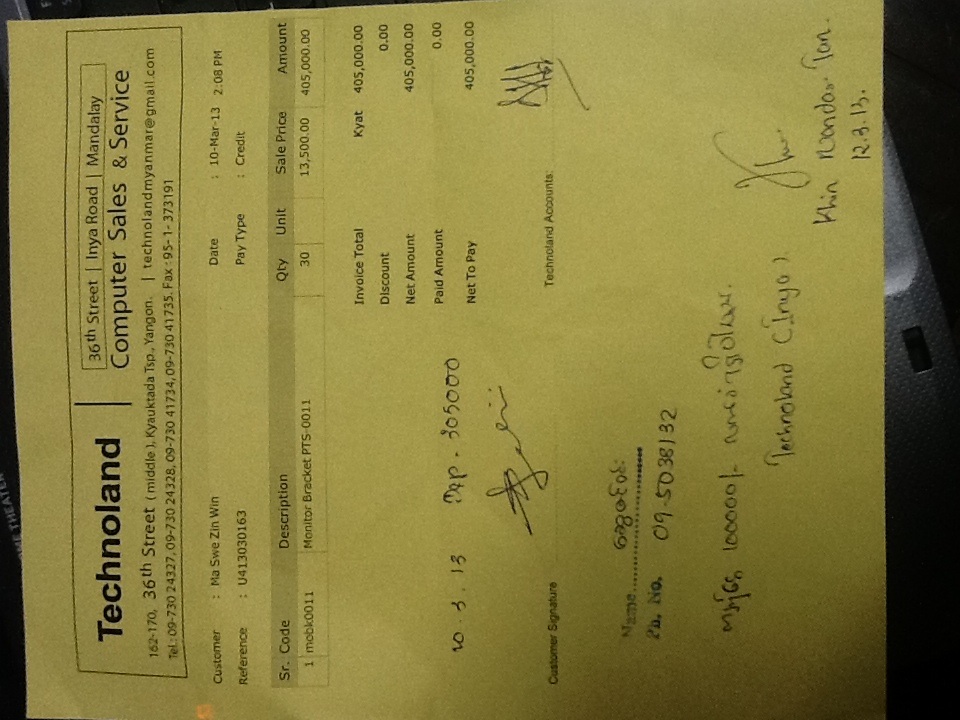 ME THEATER
Technoland
36th Street | Inya Road | Mandalay
Computer Sales & Service
162-170, 36th Street ( middle ), Kyauktada Tsp., Yangon. | technolandmyanmar@gmail.com
Tel : 09-730 24327, 09-730 24328, 09-730 41734, 09-730 41735. Fax : 95- 1- 373191
Customer : Ma Swe Zin Win Date : 10-Mar-13 2:08 PM
Reference : U413030163 Pay Type : Credit
Sr. Code Description Qty Unit Sale Price Amount
1 mobk0011 Monitor Bracket PTS-0011 30 13,500.00 405,000.00
Invoice Total Kyat 405,000.00
Discount 0.00
Net Amount 405,000.00
Paid Amount 0.00
Net To Pay 405,000.00
10.3.13 Dep. 305000
Customer Signature
Technoland Accounts:
Name
Ph. No. 09-5038132
100000/-
Technoland (Inya).
Khin Tan.
12.3.13.